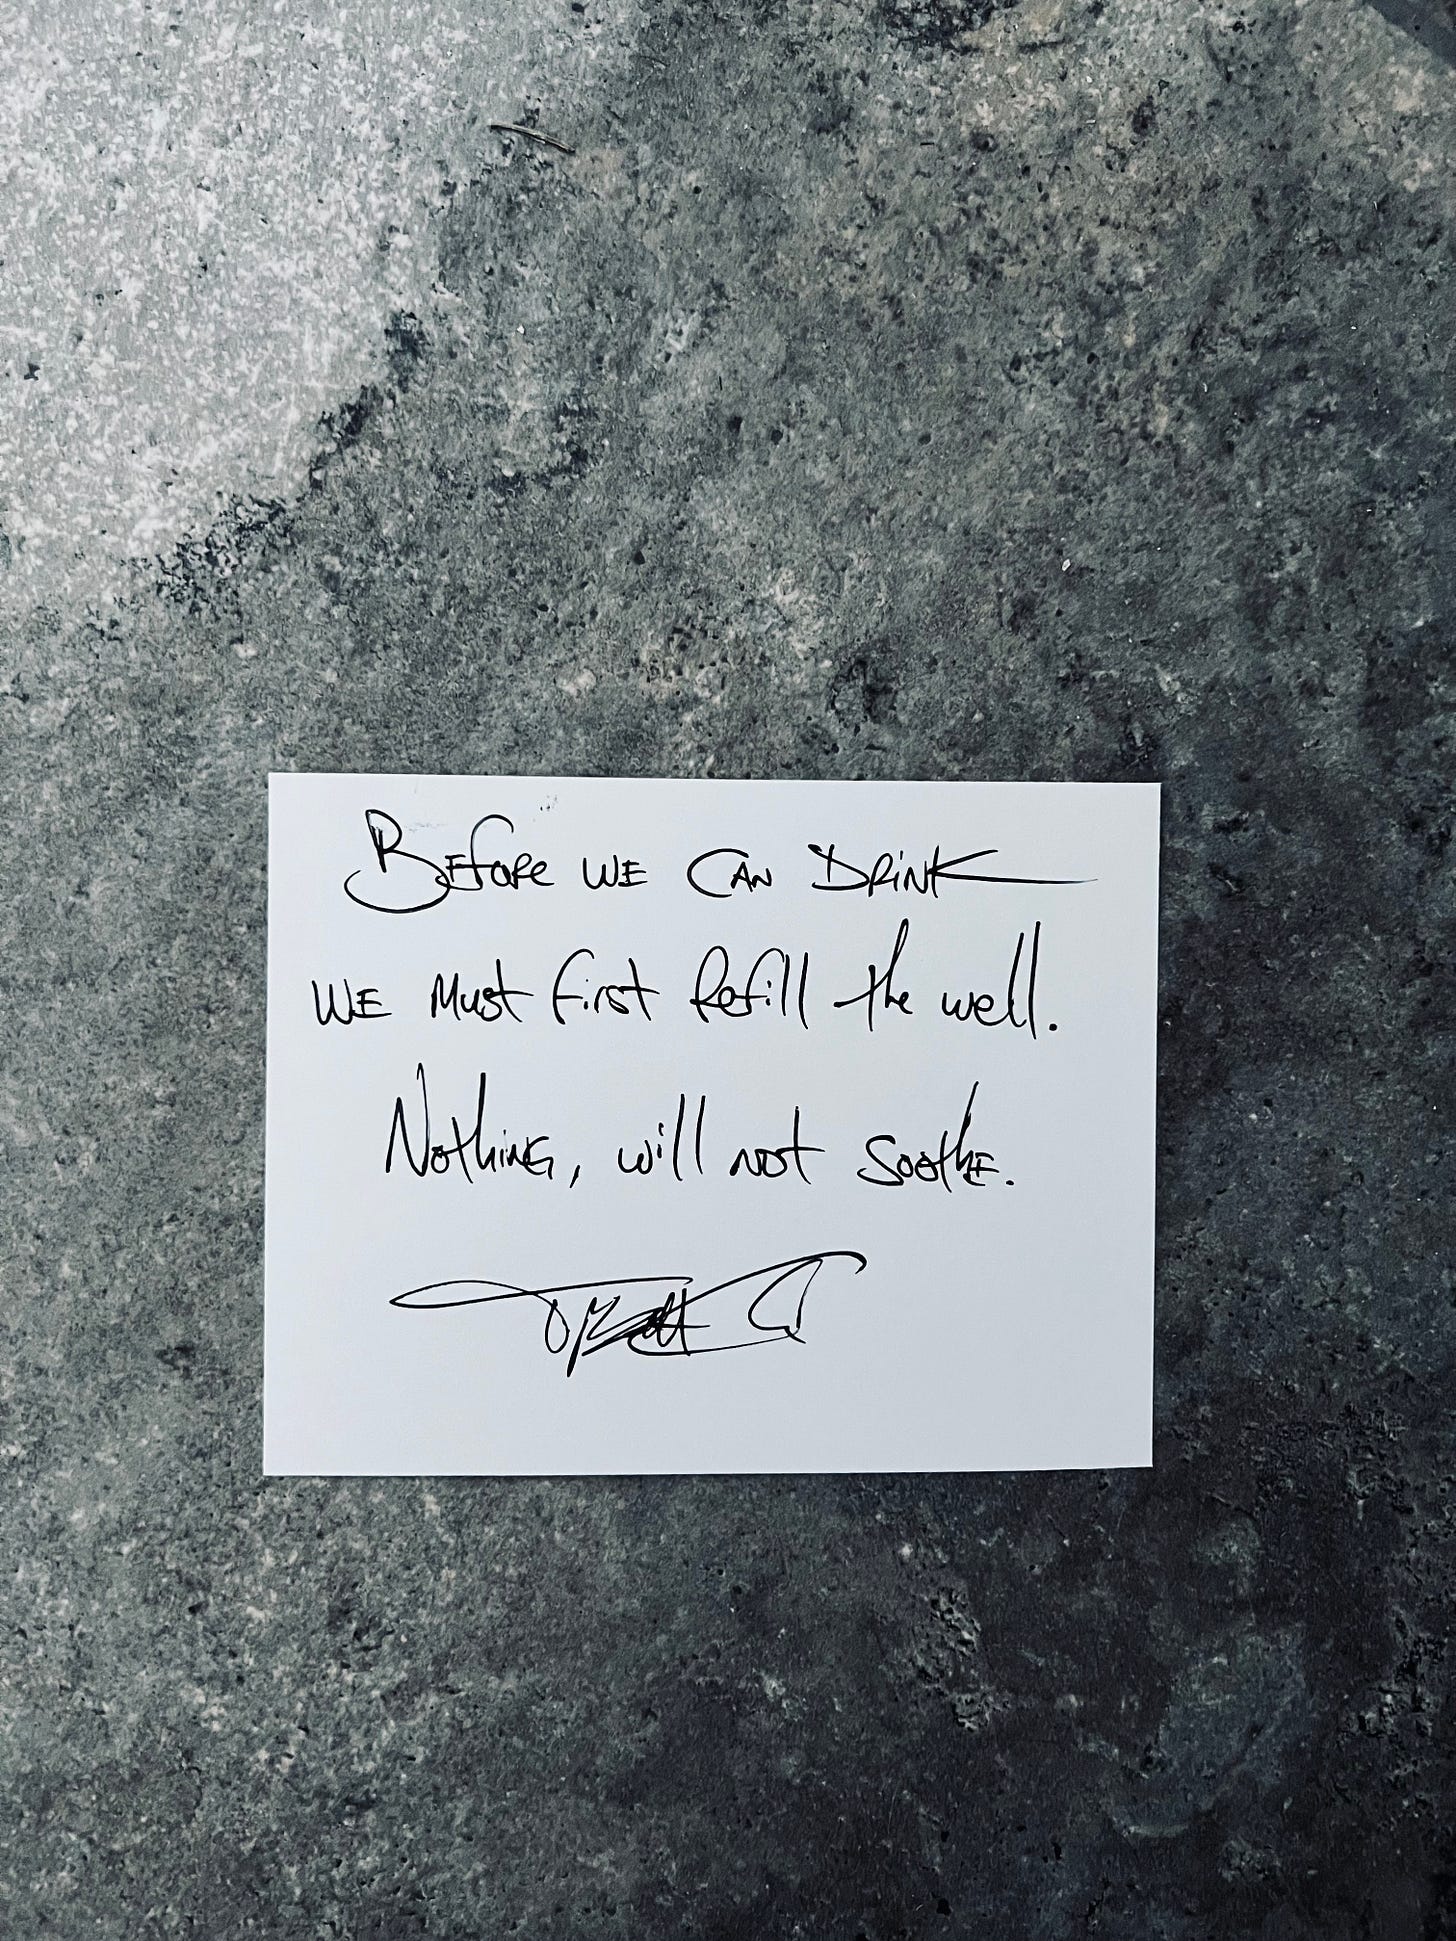 Before we can Drink
we must first refill the well.
Nothing, will not soothe.